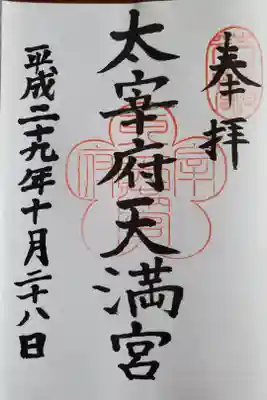 奉拝
太宰府天満宮
平成二十九年十月二十八日